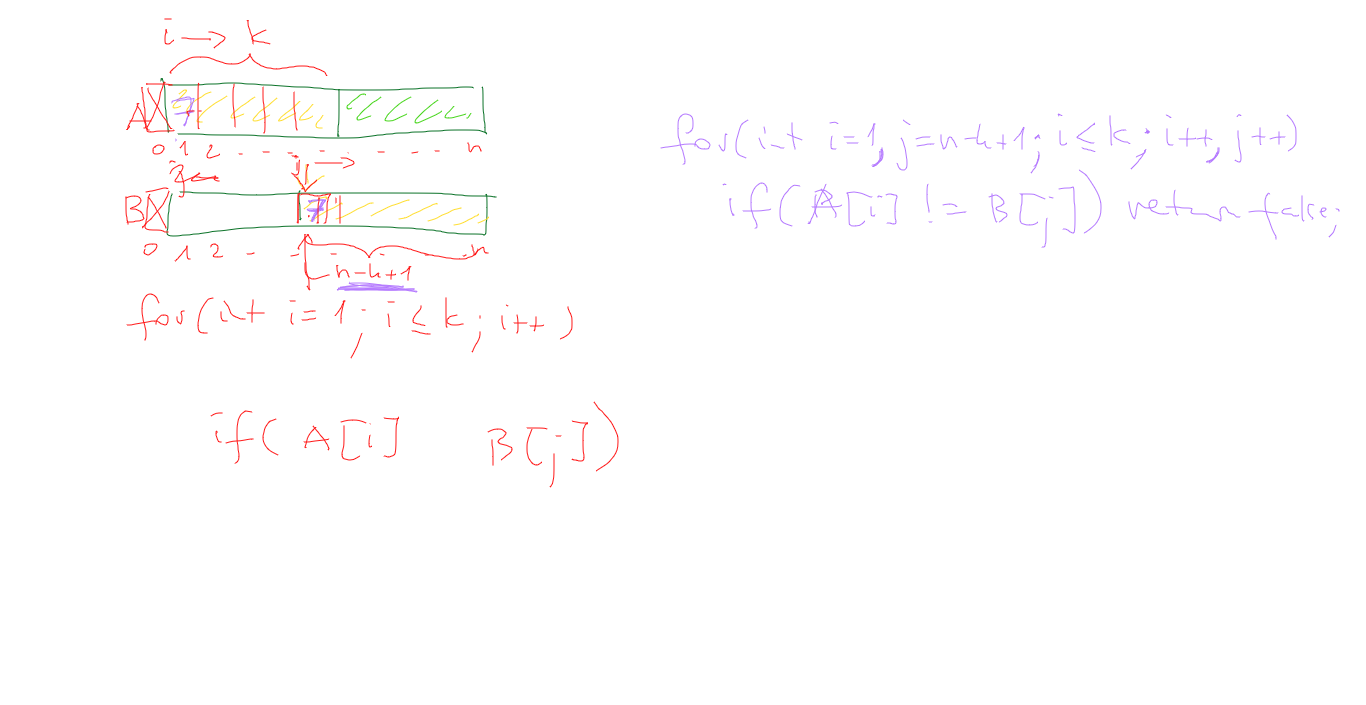 i → k
A 7
0 1 2 - - - - - - - - n
j →
B 7
0 1 2 - - - - - n
n-k+1
for(int i=1; i≤k; i++)
if(A[i] B[j])
for(int i=1, j=n-k+1; i≤k; i++, j++)
if(A[i] != B[j]) return false;